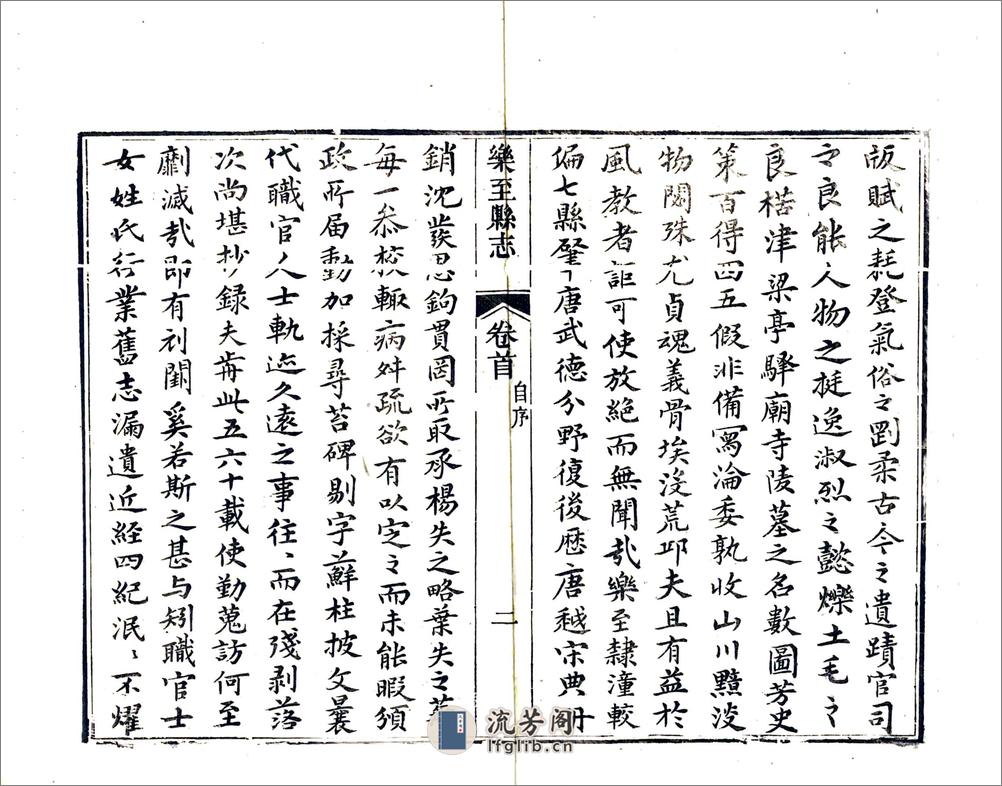 版賦之耗登氣俗之剛柔古今之遺蹟官司
之良能人物之挺逸淑烈之懿爍土毛之
良楛津梁亭驛廟寺陵墓之名數圖芳史
策百得四五假非備寫淪委孰收山川黯淡
物閟殊尤貞魂義骨埃没荒邛夫且有益於
風教者詎可使放絕而無聞哉樂至隸潼較
偏七縣肇唐武德分野復後歷唐越宋典冊
樂至縣志
卷首
自序
二
銷沈發思鉤貫罔所取承楊失之略葉失之
每一叅校輒病舛疏欲有以定之而未能暇須
政所届動加採尋苔碑剔字蘚柱披文曩
代職官人士軌迹久遠之事往〻而在殘剥落
次尚堪抄錄夫歬此五六十載使勤蒐訪何至
劘滅哉即有刋闕奚若斯之甚与矧職官士
女姓氏行業舊志漏遺近經四紀泯〻不燿
流芳阁
lfglib.cn